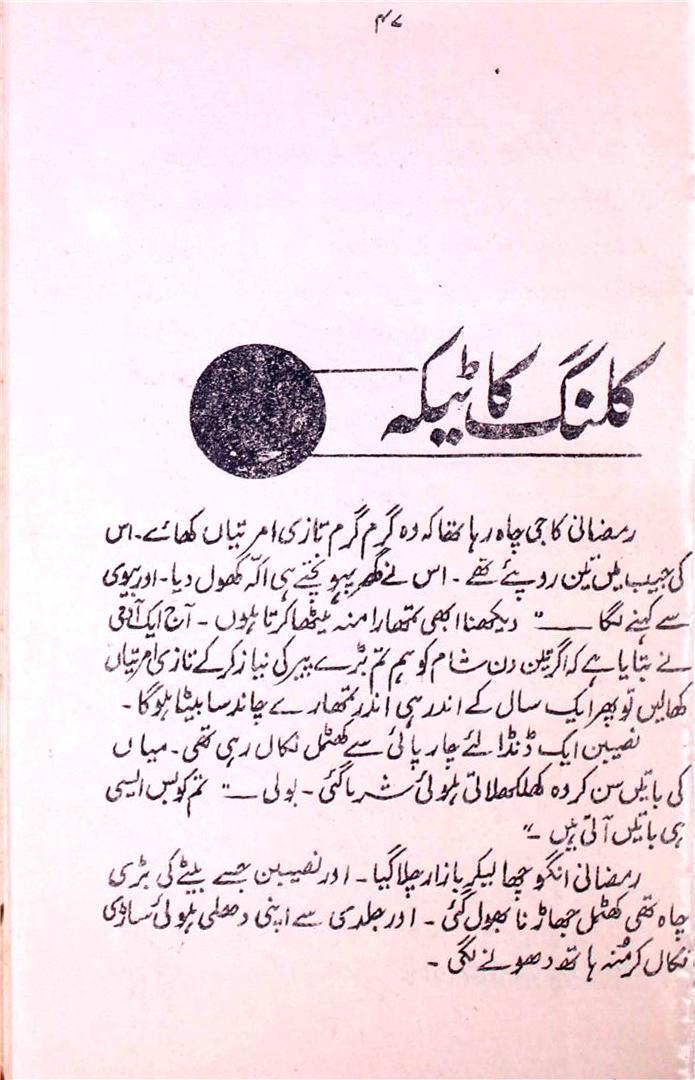 ۴۷
کلنگ کا ٹیکہ
رمضانی کا جی چاہ رہا تھا کہ وہ گرم گرم تازی امرتیاں کھائے۔ اس
کی جیب میں تین روپئے تھے۔ اس نے گھر پہونچتے ہی اکّہ کھول دیا۔ اور بیوی
سے کہنے لگا ــــ " دیکھنا ابھی تمھارا منہ میٹھا کرتا ہوں۔ آج ایک آدمی
نے بتایا ہے کہ اگر تین دن شام کو ہم تم بڑے پیر کی نیاز کر کے تازی امرتیاں
کھالیں تو پھر ایک سال کے اندر ہی اندر تمھارے چاند سا بیٹا ہوگا۔
نصیبن ایک ڈنڈا لئے چارپائی سے کھٹمل نکال رہی تھی۔ میاں
کی باتیں سن کر وہ کھلکھلاتی ہوئی شرما گئی۔ بولی ــ " تم کو بس ایسی
ہی باتیں آتی ہیں ــ"
رمضانی انگوچھا لیکر بازار چلا گیا۔ اور نصیبن جسے بیٹے کی بڑی
چاہ تھی کھٹمل جھاڑنا بھول گئی۔ اور جلدی سے اپنی دھلی ہوئی ساڑی
نکال کر مُنہ ہاتھ دھونے لگی۔